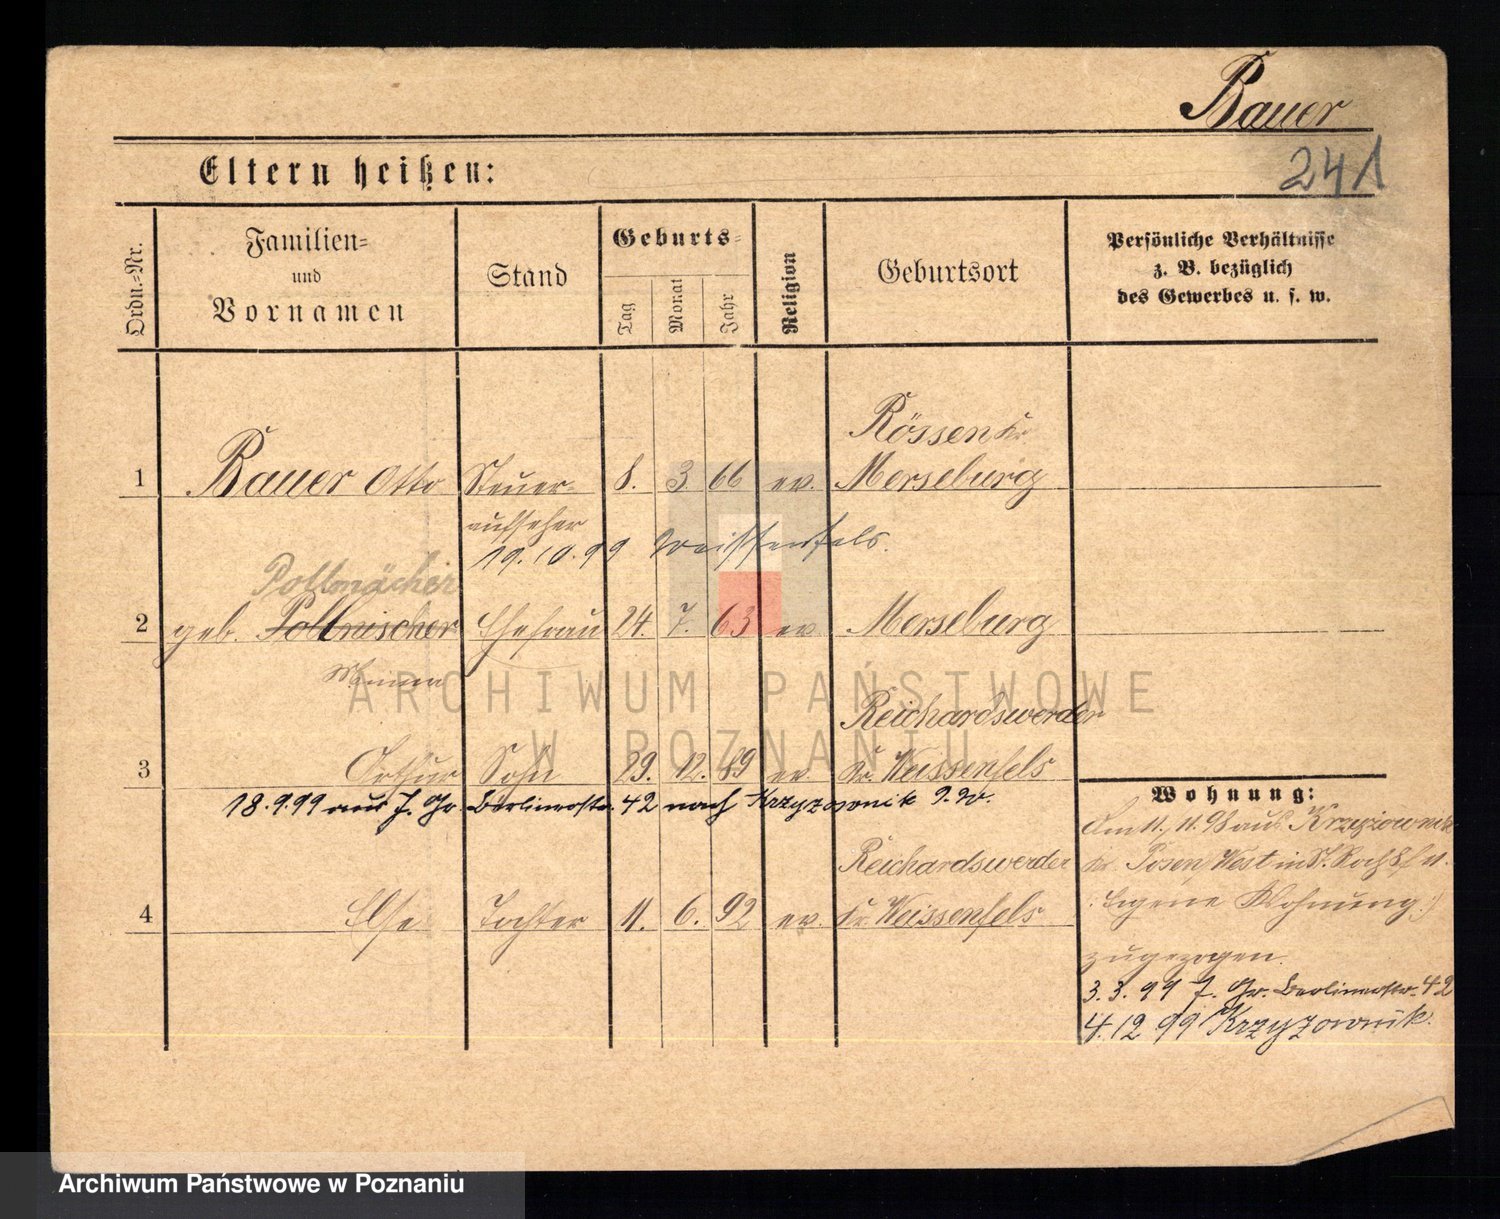 Bauer
241
Eltern heißen:
Ordn.-Nr.
Familien-
und
Vornamen
Stand
Geburts-
Tag
Monat
Jahr
Religion
Geburtsort
Persönliche Verhältnisse
z. B. bezüglich
des Gewerbes u. s. w.
Rössen Kr.
1 Bauer Otto Steuer- 8. 3 66 ev. Merseburg
aufseher
19.10.99 Weißenfels.
Pollmächer
2 geb. Pollnischer Ehefrau 24. 7. 63 ev Merseburg
Minna
Reichardswerder
3 Arthur Sohn 29. 12. 89 ev. Kr. Weissenfels
18.9.99 aus J. Gr. Berlinerstr. 42 nach Krzyzownik
Reichardswerder
4 Else Tochter 11. 6. 92 ev. Kr. Weissenfels
Wohnung:
Am 11. 11. 98 aus Krzyzownik
Kr. Posen West in St. Roch
Eigene Wohnung
zugezogen.
3. 3. 99 J. Gr. Berlinerstr. 42
4. 12 99 Krzyzownik.
ARCHIWUM PAŃSTWOWE
W POZNANIU
Archiwum Państwowe w Poznaniu